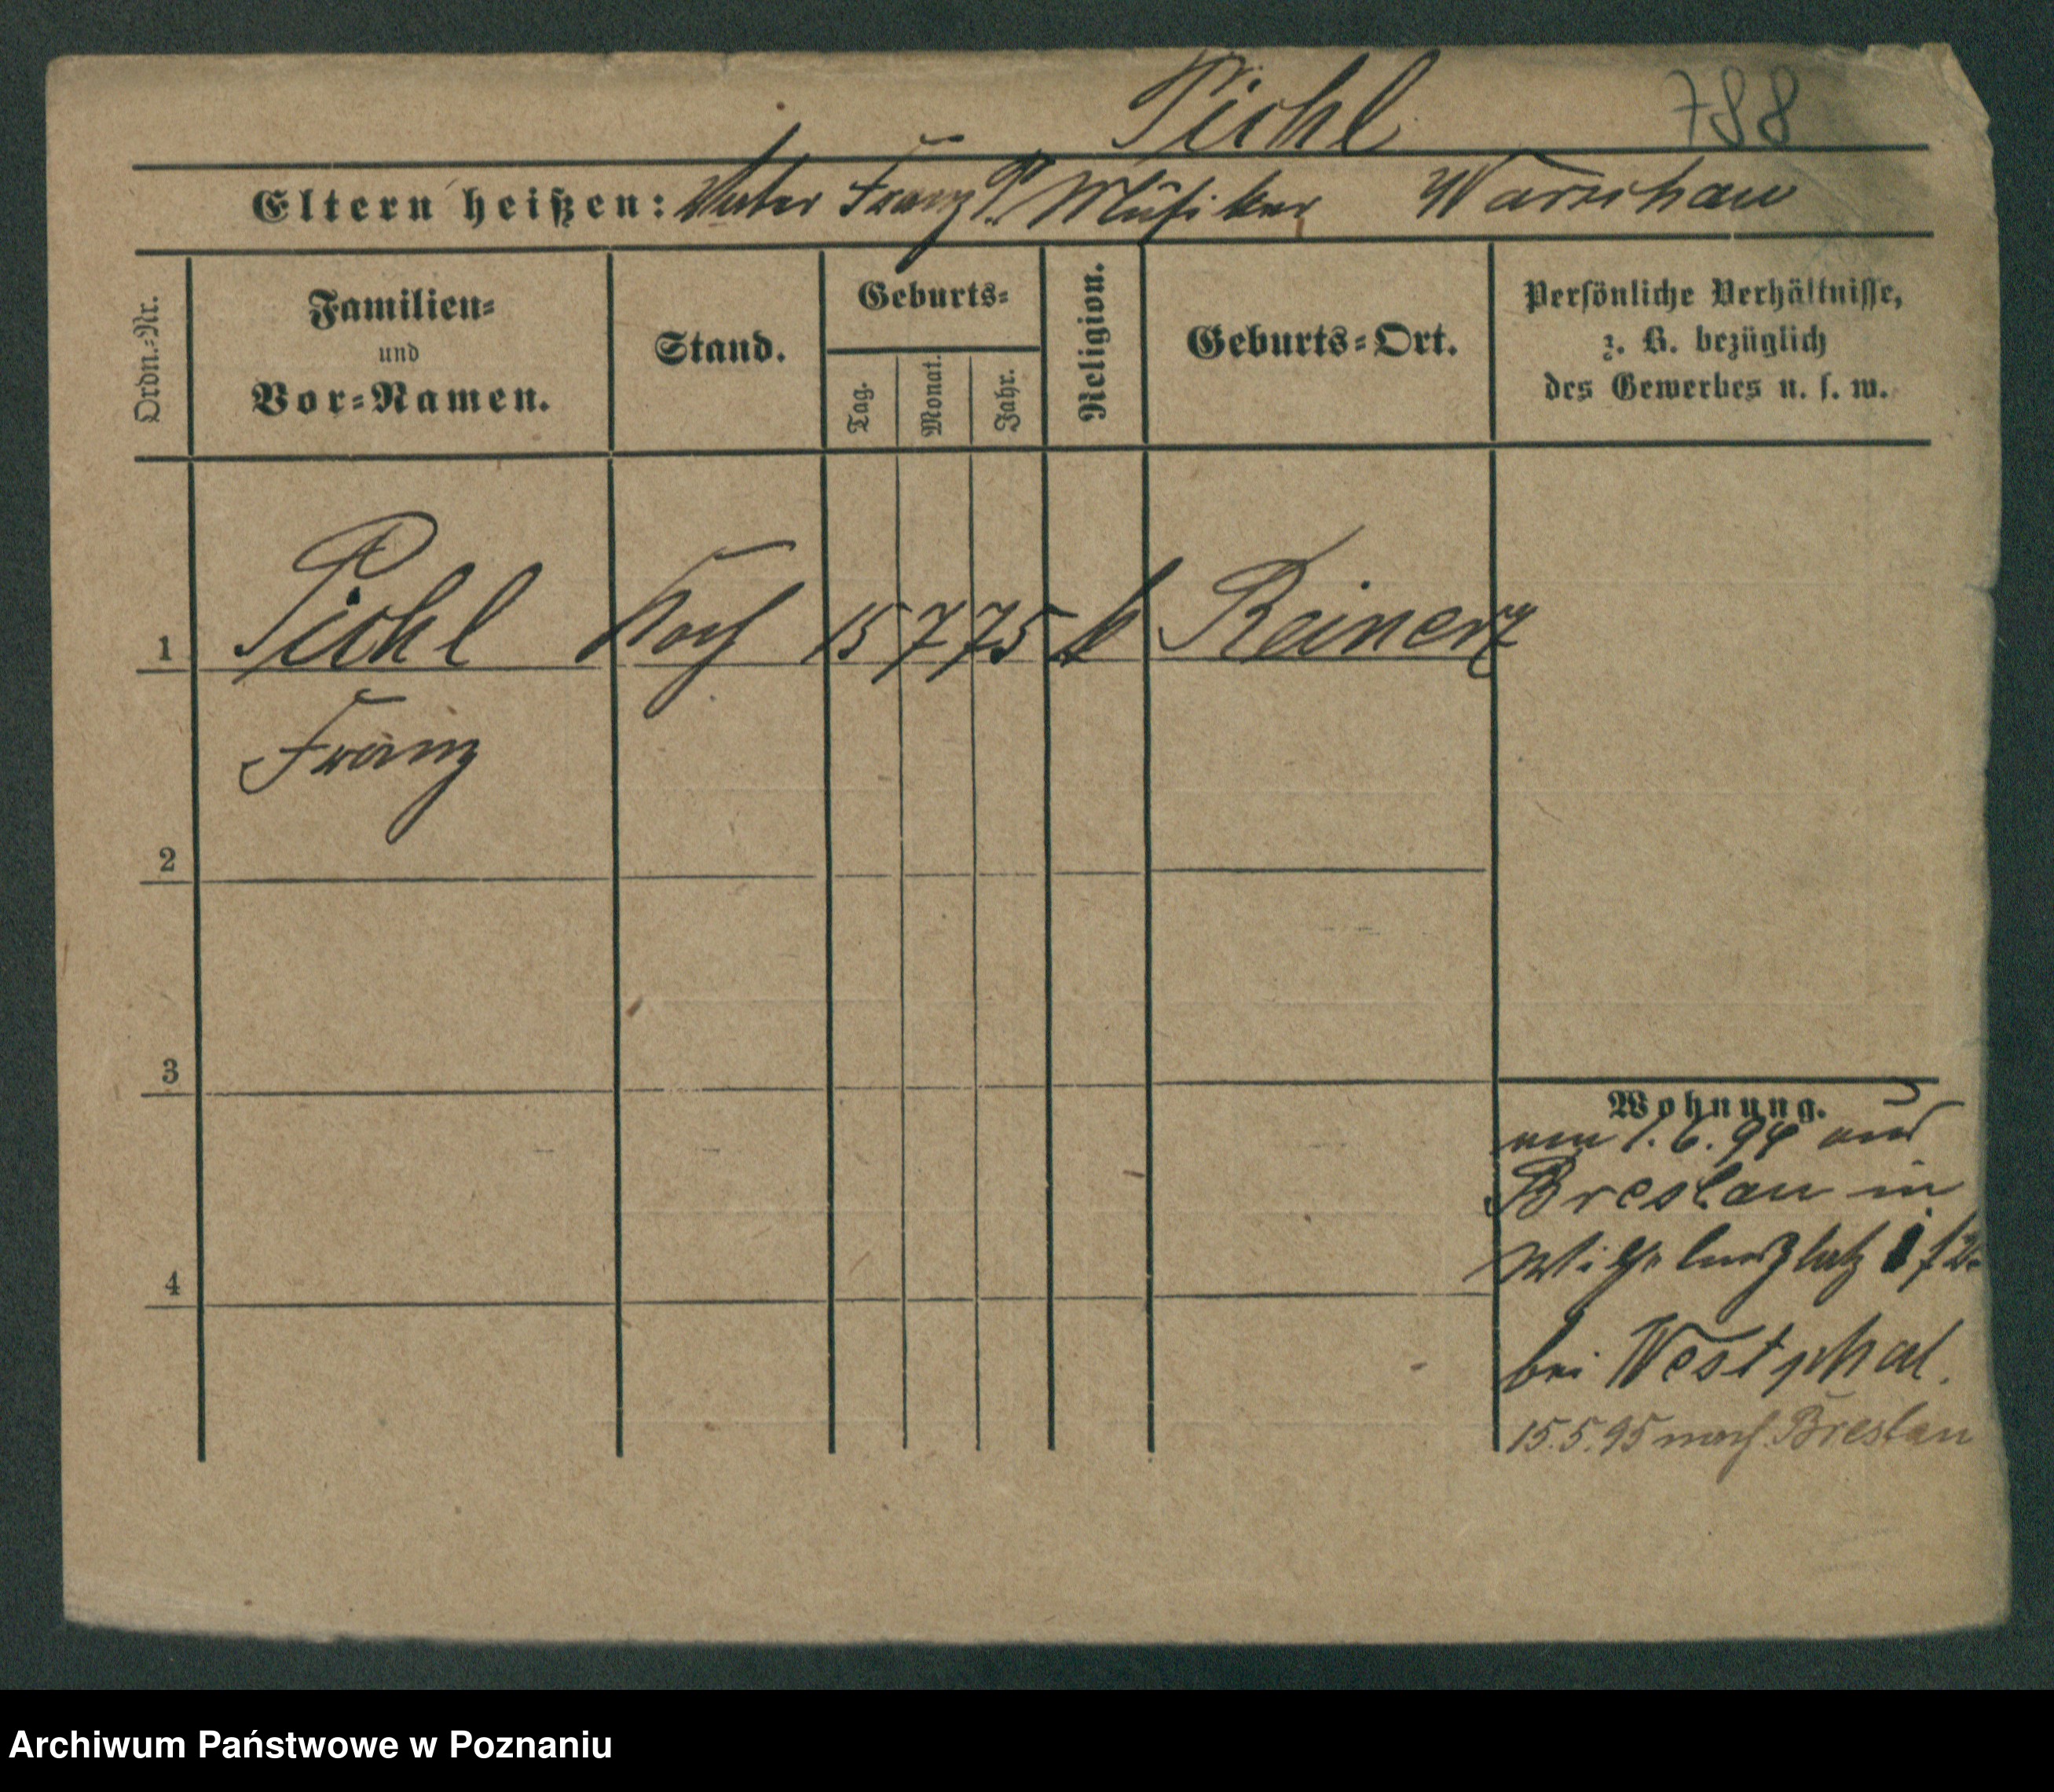 Pichl 788
Eltern heißen: Vater Franz P. Musiker Warschau
Ordn.-Nr.
Familien-
und
Vor-Namen.
Stand.
Geburts-
Tag.
Monat.
Jahr.
Religion.
Geburts-Ort.
Persönliche Verhältnisse,
z. B. bezüglich
des Gewerbes u. s. w.
1 Pichl Koch 15 7 75 k Reinerz
Franz
2
3
4
Wohnung.
am 1. 6. 94 aus
Breslau in
Wilhelmsplatz
bei Westphal.
15.5.95 nach Breslau
Archiwum Państwowe w Poznaniu